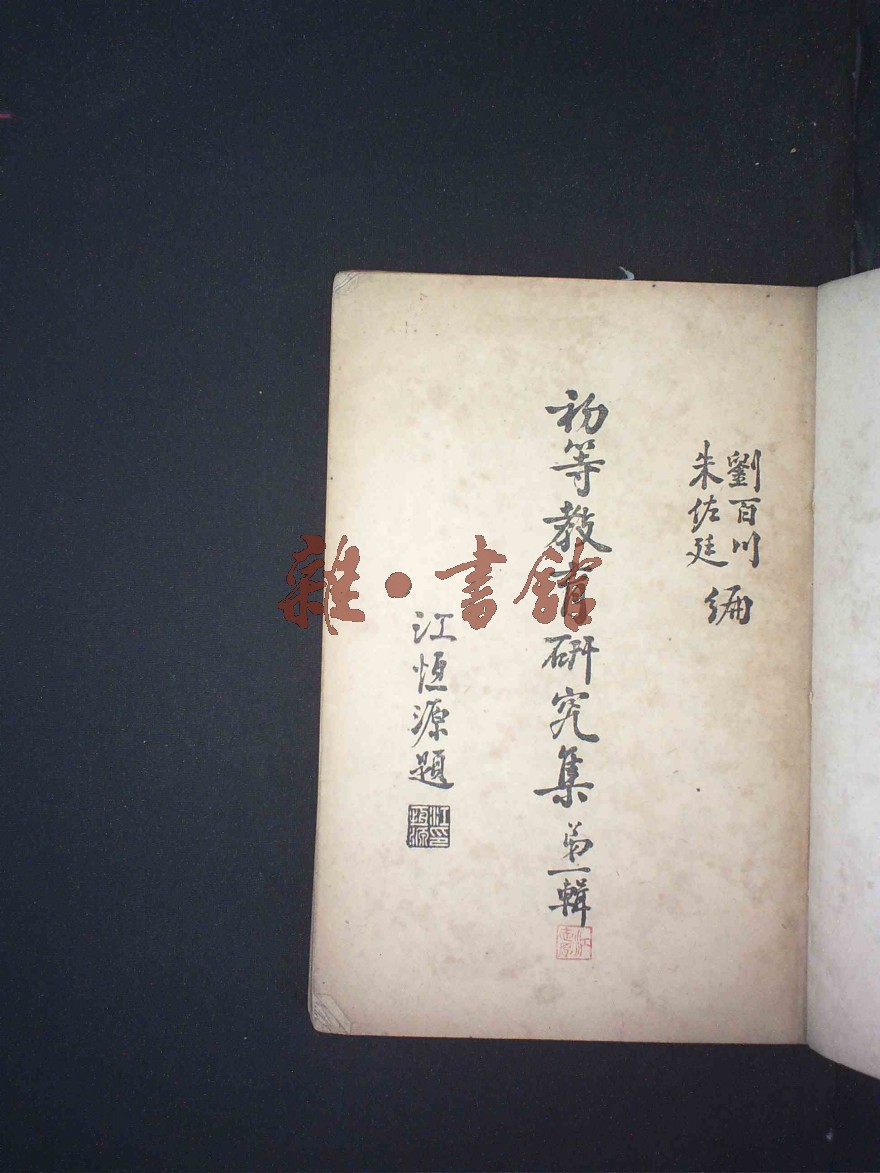 劉百川
朱佐廷 編
初等教育研究集 第一輯
江恆源題
江恆源印
雜·書館